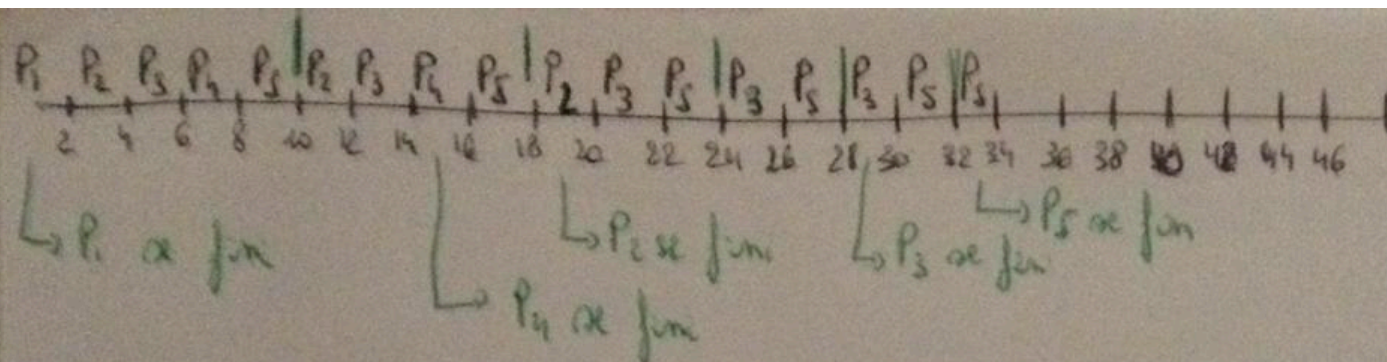 P1 P2 P3 P4 P5 P2 P3 P4 P5 P2 P3 P5 P3 P5 P3 P5 P5
2 4 6 8 10 12 14 16 18 20 22 24 26 28 30 32 34 36 38 40 42 44 46
P5 se fin
P1 se fin P2 se fini P3 se fin
P4 se fini